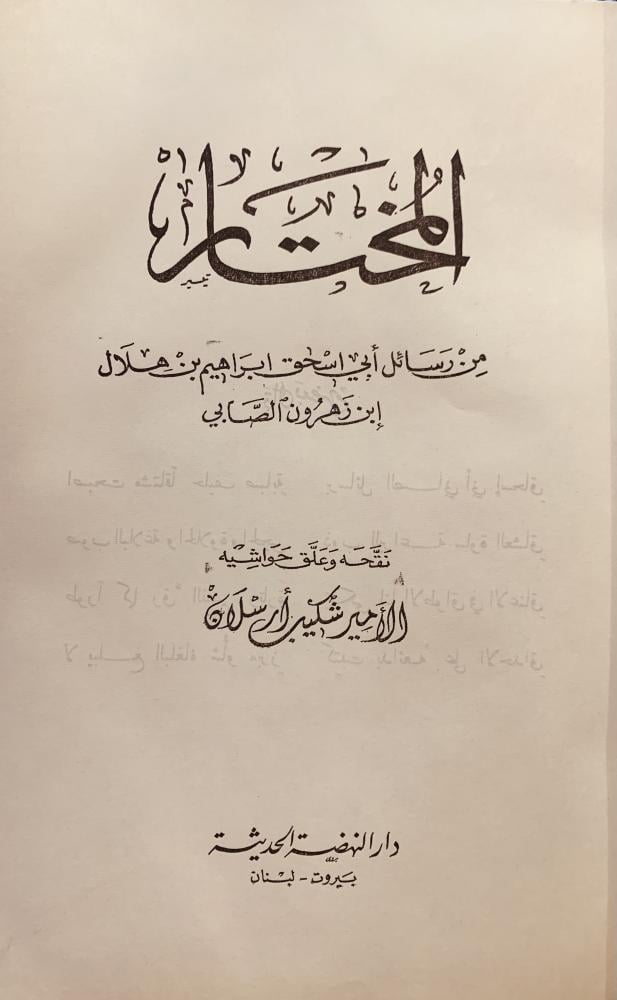 المُختَار
مِنْ رَسَائل أبي اسْحق ابرَاهيم بنْ هلَال
إبن زَهرُون الصَّابي
نَقَّحَه وَعَلَّق حَوَاشيه
الأمير شكيب أرسْلَان
دار النهضة الحديثة
بَيروت - لبْنان